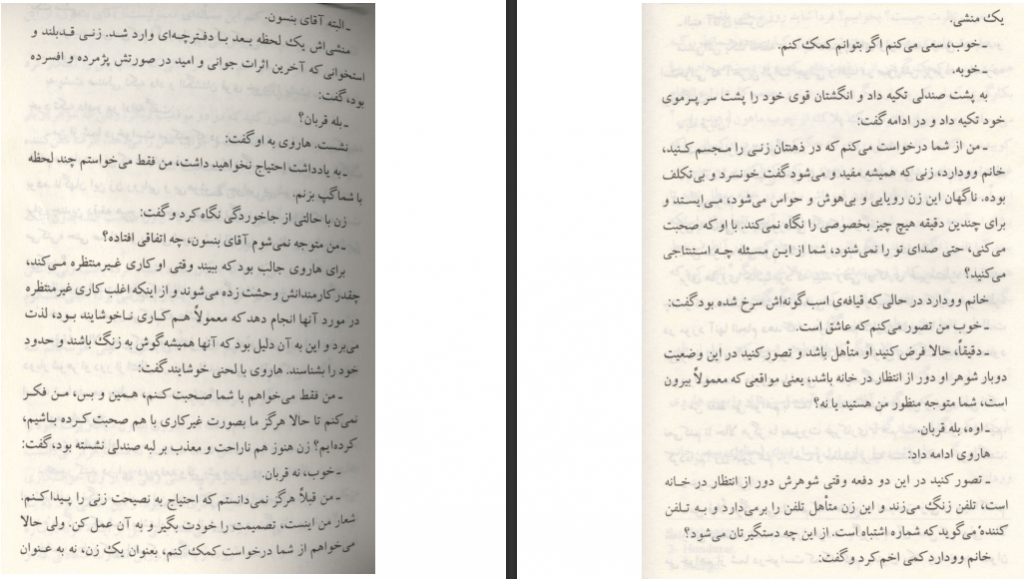 ـ البته آقای بنسون.
منشی‌اش یک لحظه بعد با دفترچه‌ای وارد شد. زنی قدبلند و
استخوانی که آخرین اثرات جوانی و امید در صورتش پژمرده و افسرده
بود، گفت:
ـ بله قربان؟
نشست. هاروی به او گفت:
ـ به یادداشت احتیاج نخواهید داشت، من فقط می‌خواستم چند لحظه
با شما گپ بزنم.
زن با حالتی از جاخوردگی نگاه کرد و گفت:
ـ من متوجه نمی‌شوم آقای بنسون، چه اتفاقی افتاده؟
برای هاروی جالب بود که ببیند وقتی او کاری غیرمنتظره می‌کند،
چقدر کارمندانش وحشت زده می‌شوند و از اینکه اغلب کاری غیرمنتظره
در مورد آنها انجام دهد که معمولاً هم کاری ناخوشایند بود، لذت
می‌برد و این به آن دلیل بود که آنها همیشه گوش به زنگ باشند و حدود
خود را بشناسند. هاروی با لحنی خوشایند گفت:
ـ من فقط می‌خواهم با شما صحبت کنم، همین و بس، من فکر
نمی‌کنم تا حالا هرگز ما بصورت غیرکاری با هم صحبت کرده باشیم،
کرده‌ایم؟ زن هنوز هم ناراحت و معذب بر لبه صندلی نشسته بود، گفت:
ـ خوب، نه قربان.
ـ من قبلاً هرگز نمی‌دانستم که احتیاج به نصیحت زنی را پیدا کنم.
شعار من اینست، تصمیمت را خودت بگیر و به آن عمل کن. ولی حالا
می‌خواهم از شما درخواست کمک کنم، بعنوان یک زن، نه به عنوان
یک منشی.
ـ خوب، سعی می‌کنم اگر بتوانم کمک کنم.
ـ خوبه.
به پشت صندلی تکیه داد و انگشتان قوی خود را پشت سر پرموی
خود تکیه داد و در ادامه گفت:
ـ من از شما درخواست می‌کنم که در ذهنتان زنی را مجسم کنید،
خانم وودارد، زنی که همیشه مفید و می‌شود گفت خونسرد و بی‌تکلف
بوده. ناگهان این زن رویایی و بی‌هوش و حواس می‌شود، می‌ایستد و
برای چندین دقیقه هیچ چیز بخصوصی را نگاه نمی‌کند. با او که صحبت
می‌کنی، حتی صدای تو را نمی‌شنود، شما از این مسئله چه استنتاجی
می‌کنید؟
خانم وودارد در حالی که قیافه‌ی اسب گونه‌اش سرخ شده بود گفت:
ـ خوب من تصور می‌کنم که عاشق است.
ـ دقیقاً، حالا فرض کنید او متأهل باشد و تصور کنید در این وضعیت
دوبار شوهر او دور از انتظار در خانه باشد، یعنی مواقعی که معمولاً بیرون
است، شما متوجه منظور من هستید یا نه؟
ـ اوه، بله قربان.
هاروی ادامه داد:
ـ تصور کنید در این دو دفعه وقتی شوهرش دور از انتظار در خانه
است، تلفن زنگ می‌زند و این زن متأهل تلفن را برمی‌دارد و به تلفن
کننده می‌گوید که شماره اشتباه است. از این چه دستگیرتان می‌شود؟
خانم وودارد کمی اخم کرد و گفت: